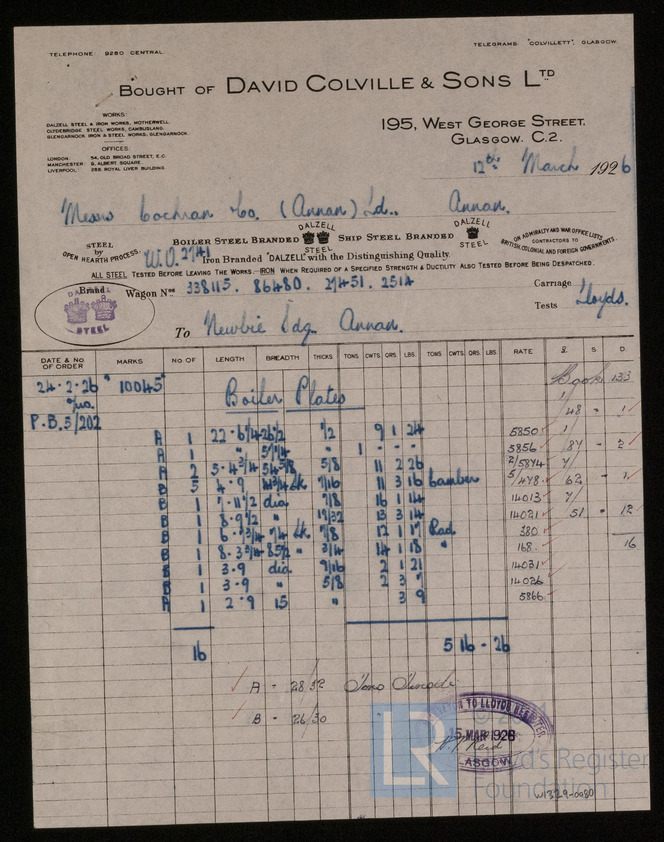 TELEPHONE: 9280 CENTRAL.
TELEGRAMS "COLVILLETT", GLASGOW.
BOUGHT OF DAVID COLVILLE & SONS LTD
WORKS:
DALZELL STEEL & IRON WORKS, MOTHERWELL.
CLYDEBRIDGE STEEL WORKS, CAMBUSLANG.
GLENGARNOCK IRON & STEEL WORKS, GLENGARNOCK.
OFFICES:
LONDON: 54, OLD BROAD STREET, E.C.
MANCHESTER: 9, ALBERT SQUARE.
LIVERPOOL: 288, ROYAL LIVER BUILDING
195, WEST GEORGE STREET.
GLASGOW. C.2.
12th March 1926
Messrs Cochran & Co. (Annan) Ld., Annan.
STEEL by OPEN HEARTH PROCESS.
BOILER STEEL BRANDED DALZELL STEEL SHIP STEEL BRANDED DALZELL STEEL
ON ADMIRALTY AND WAR OFFICE LISTS
CONTRACTORS TO
BRITISH, COLONIAL AND FOREIGN GOVERNMENTS.
W.O. 2741
Iron Branded "DALZELL" with the Distinguishing Quality.
ALL STEEL TESTED BEFORE LEAVING THE WORKS.—IRON WHEN REQUIRED OF A SPECIFIED STRENGTH & DUCTILITY ALSO TESTED BEFORE BEING DESPATCHED.
Brand
DALZELL STEEL
Wagon Nos 338115. 86480. 27451. 2514
Carriage
Tests Lloyds.
To Newbie Sdg. Annan.
DATE & NO. OF ORDER MARKS NO. OF LENGTH BREADTH THICKS TONS CWTS. QRS. LBS. TONS CWTS. QRS. LBS. RATE £ S D
24.2.26 10045 Book 133
P.B.5/202 Boiler Plates
48 - 1
A 1 22.6 1/4 26 1/2 1/2 9 1 24 5850
A 1 " 1 - - - 5856 87 - 2
A 2 5.4 3/4 5/8 11 2 26 2/5874
B 5 4.9 7/16 11 3 16 Camber 5/478 62 - 1
B 1 7.11 1/2 dia 7/8 16 1 14 14013
B 1 8.9 1/2 " 19/32 13 3 14 14021 51 - 12
B 1 7/8 12 1 17 Rad 380
B 1 8.3 3/4 85 1/2 " 3/4 14 1 18 " 168 16
B 1 3.9 dia 9/16 2 1 21 14031
B 1 3.9 " 5/8 2 3 7 14026
A 1 2.9 15 " 3 9 5866
16 5 16 - 26
A - 28/32 Tons Tensile
B - 26/30
TO LLOYD'S REGISTER
15 MAR 1926
GLASGOW
LR
Lloyd's Register
Foundation
W1329-0080